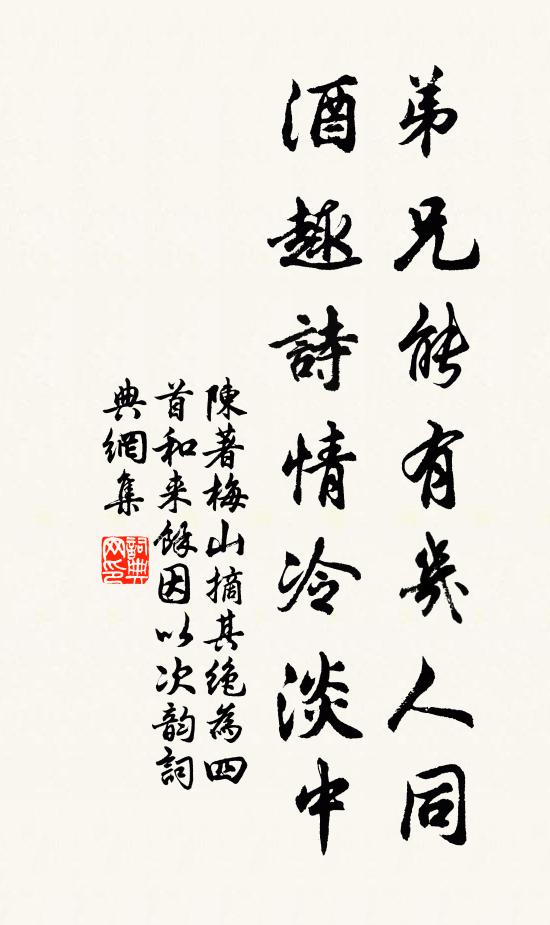 弟兄能有幾人同
酒趣詩情冷淡中
陳著梅山摘其絶為四
首和来餘因以次韵詞
典網集
詞典
网印